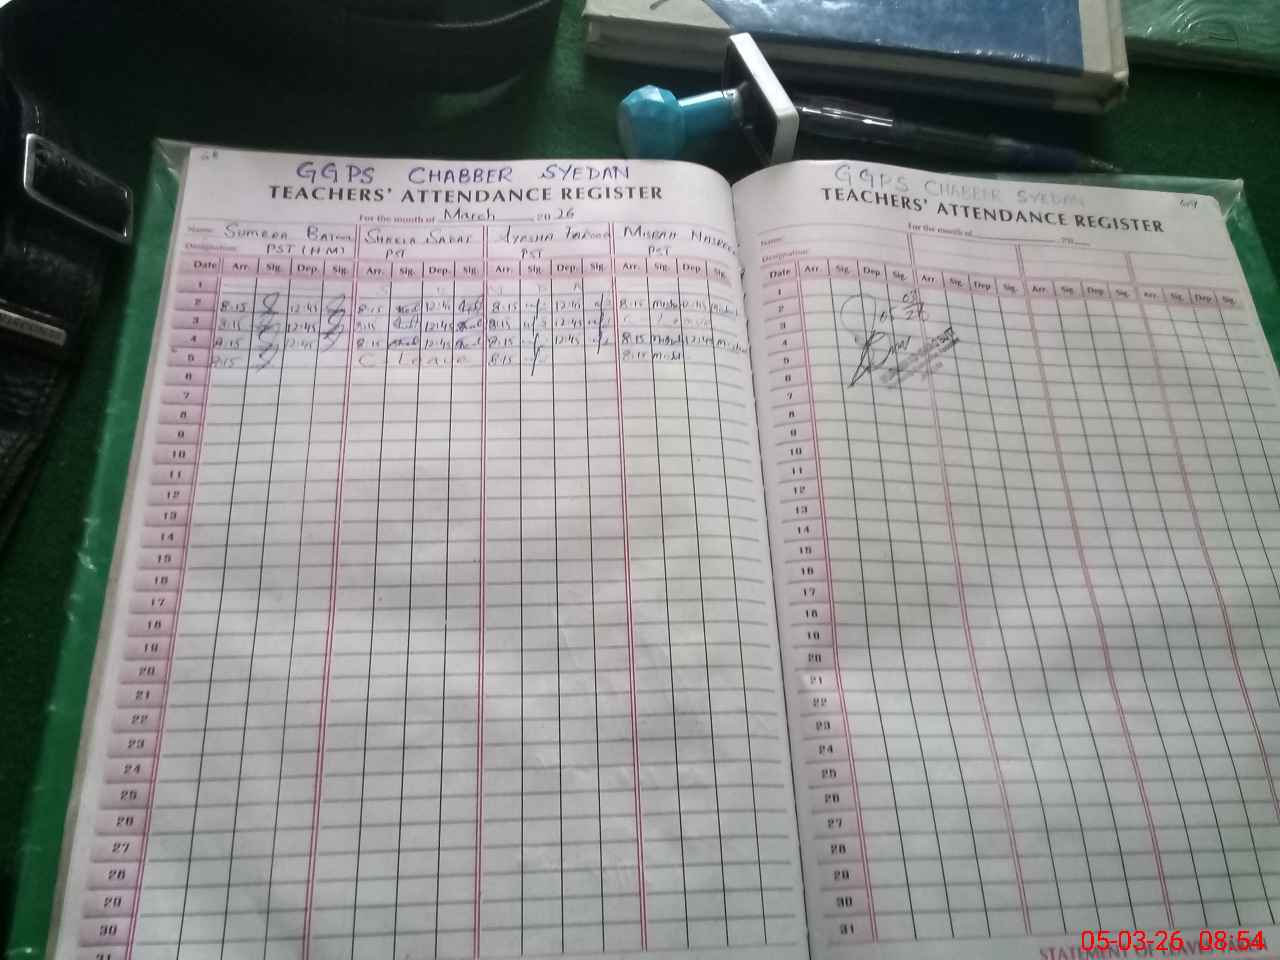 GGPS CHABBER SYEDAN
TEACHERS' ATTENDANCE REGISTER
For the month of March 20 26
Name: Sumera Batool Shakla Sadaf Ayesha Farooq Misbah Nasreen
Designation: PST (HM) PST PST PST
Date Arr. Sig. Dep. Sig. Arr. Sig. Dep. Sig. Arr. Sig. Dep. Sig. Arr. Sig. Dep. Sig.
1 S U N D A
2 8:15 12:45 8:15 12:45 8:15 12:45 8:15 12:45
3 8:15 12:45 8:15 12:45 8:15 12:45 C Leave
4 8:15 12:45 8:15 12:45 8:15 12:45 8:15 12:45
5 8:15 C Leave 8:15 8:15
6
7
8
9
10
11
12
13
14
15
16
17
18
19
20
21
22
23
24
25
26
27
28
29
30
31
GGPS CHABBER SYEDAN
TEACHERS' ATTENDANCE REGISTER
For the month of 20
Name:
Designation:
Date Arr. Sig. Dep. Sig. Arr. Sig. Dep. Sig. Arr. Sig. Dep. Sig. Arr. Sig. Dep. Sig.
1
2
3
4
5
6
7
8
9
10
11
12
13
14
15
16
17
18
19
20
21
22
23
24
25
26
27
28
29
30
31
STATEMENT OF LEAVES TAKEN
05-03-26 08:54